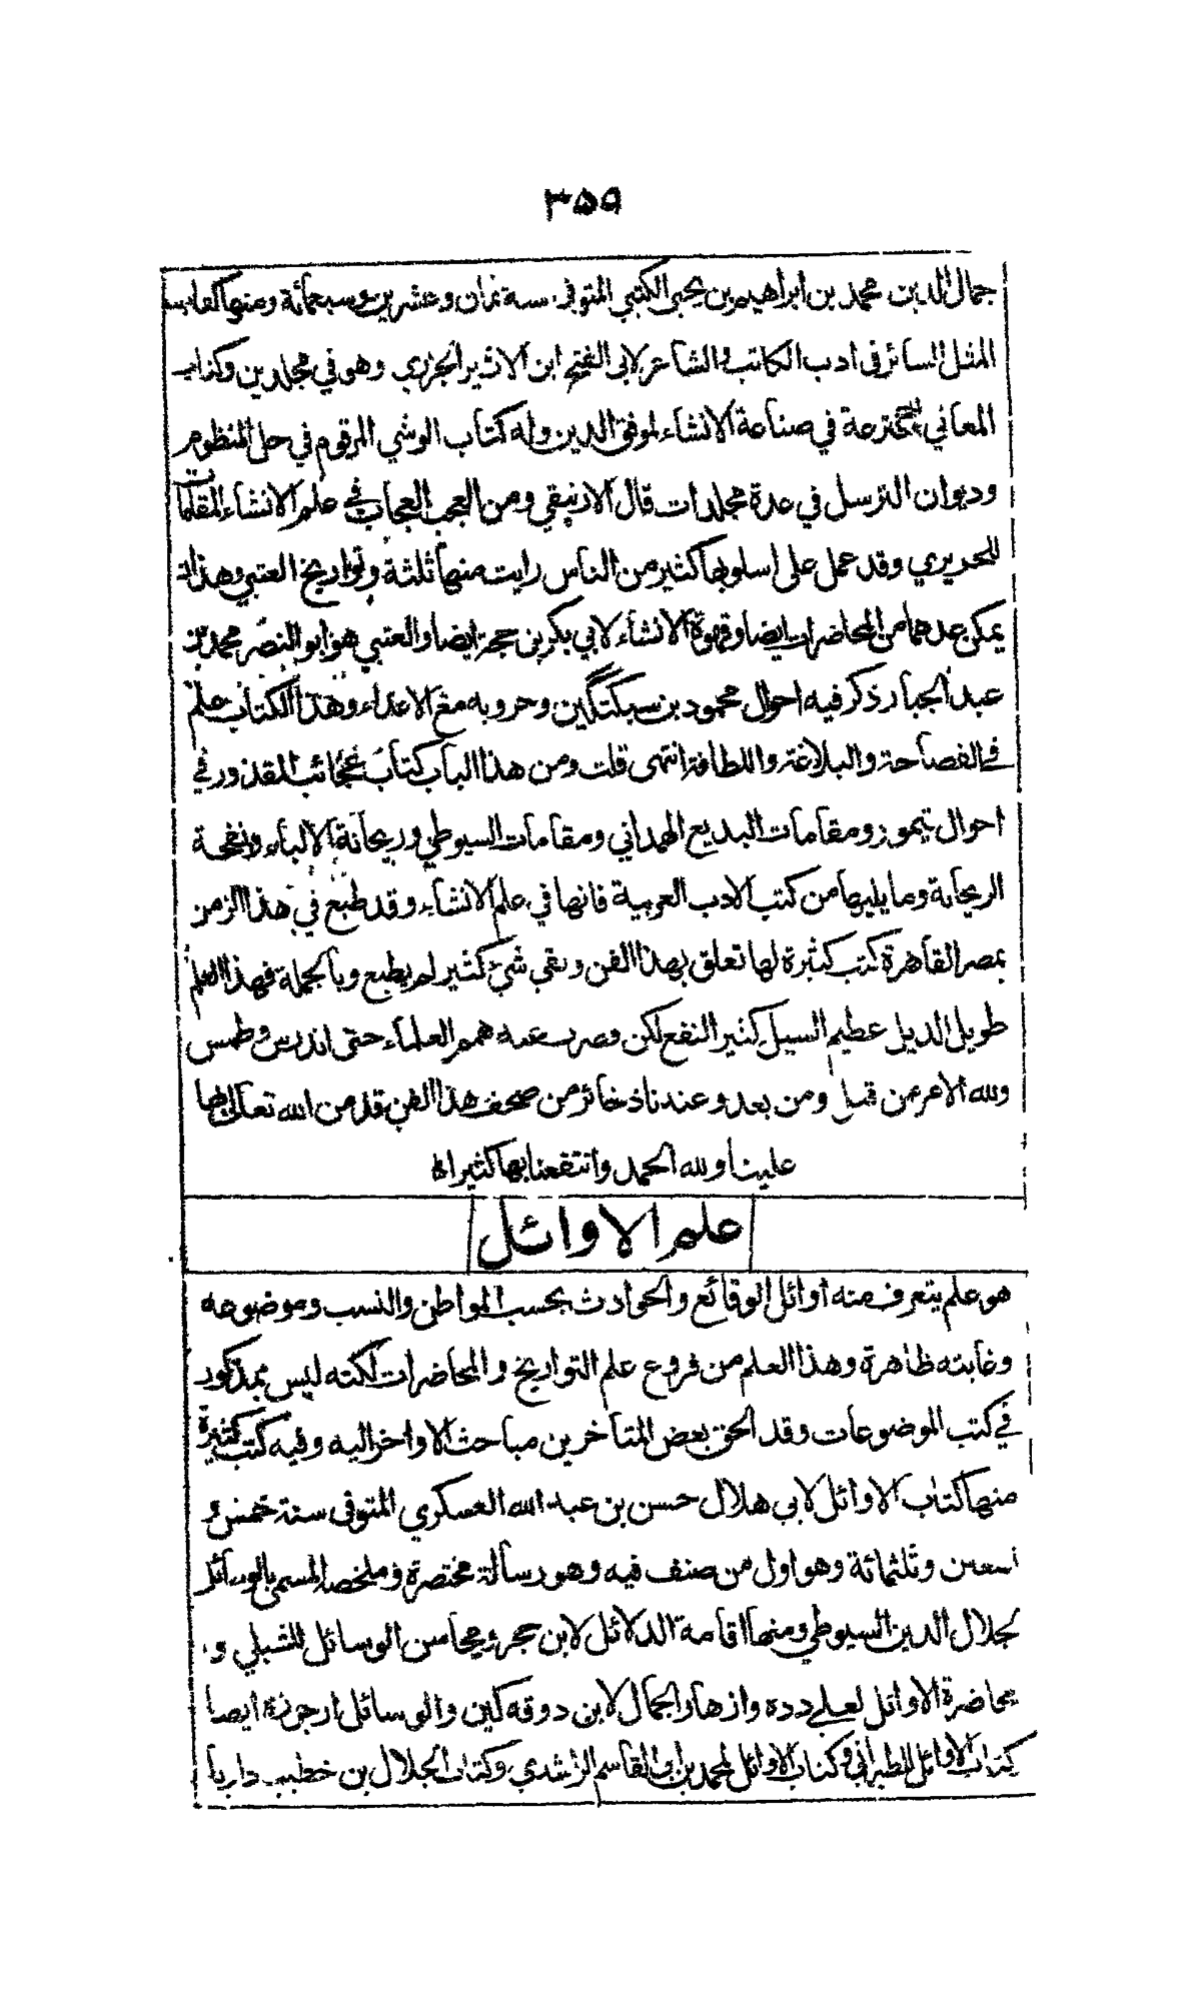 ٣٥٩
جمال الدين محمد بن ابراهيم بن يحيى الكتبي المتوفى سنة ثمان وعشرين وسبعمائة ومنها كتاب
المثل السائر في ادب الكاتب والشاعر لابي الفتح ابن الاثير الجزري وهو في مجلدين وكتاب
المعاني المخترعة في صناعة الانشاء لموفق الدين وله كتاب الوشي المرقوم في حل المنظوم
وديوان الترسل في عدة مجلدات قال الارنيقي ومن العجب العجاب في علم الانشاء المقامات
للحريري وقد عمل على اسلوبها كثير من الناس رايت منها ثلثة وتواريخ العتبي وهذان
يمكن عدهما من المحاضرات ايضا وقهوة الانشاء لابي بكر بن حجة ايضا والعتبي هو ابو النصر محمد بن
عبد الجبار ذكر فيه احوال محمود بن سبكتگين وحروبه مع الاعداء وهذا الكتاب علم
في الفصاحة والبلاغة واللطافة انتهى قلت ومن هذا الباب كتاب عجائب المقدور في
احوال تيمور ومقامات البديع الهمداني ومقامات السيوطي وريحانة الالباء ونفحة
الريحانة وما يليها من كتب الادب العربية فانها في علم الانشاء وقد طبع في هذا الزمن
بمصر القاهرة كتب كثيرة لها تعلق بهذا الفن وبقي شيء كثير لم يطبع وبالجملة فهذا العلم
طويل الذيل عظيم السيل كثير النفع لكن قصرت عنه همم العلماء حتى اندرس وطمس
ولله الامر من قبل ومن بعد وعندنا ذخائر من صحف هذا الفن قد من الله تعالى بها
علينا ولله الحمد وانتفعنا بها كثيرا
علم الاوائل
هو علم يتعرف منه اوائل الوقائع والحوادث بحسب المواطن والنسب وموضوعه
وغايته ظاهرة وهذا العلم من فروع علم التواريخ والمحاضرات لكنه ليس بمذكور
في كتب الموضوعات وقد الحق بعض المتاخرين مباحث الاواخر اليه وفيه كتب كثيرة
منها كتاب الاوائل لابي هلال حسن بن عبد الله العسكري المتوفى سنة خمس و
تسعين وثلثمائة وهو اول من صنف فيه وهو رسالة مختصرة وملخصه المسمى بالوسائل
لجلال الدين السيوطي ومنها اقامة الدلائل لابن حجر ومحاسن الوسائل للشبلي و
محاضرة الاوائل لعلي دده وازهار الجمال لابن دوقه كين والوسائل ارجوزة ايضا
كتاب الاوائل للطبراني وكتاب الاوائل لمحمد بن ابي القاسم الراشدي وكتاب الجلال بن خطيب داريا